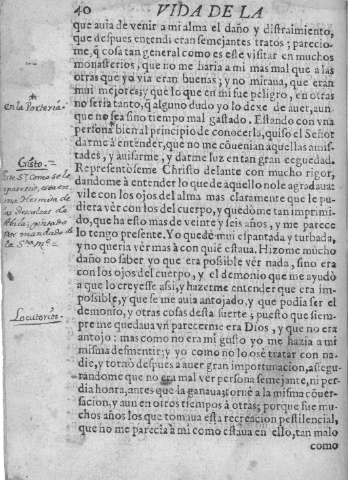 40 VIDA DE LA
que auia de venir a mi alma el daño y distraimiento,
que despues entendi eran semejantes tratos; parecio-
me, q̃ cosa tan general como es este visitar en muchos
monasterios, que no me haria a mi mas mal que a las
otras que yo via eran buenas; y no miraua, que eran
mui mejores, y que lo que en mi fue peligro, en otras
no sería tanto, q̃ alguno dudo yo lo dexe de auer, aun-
que no sea sino tiempo mal gastado. Estando con vna
persona, bien al principio de conocerla, quiso el Señor
darme à entender, que no me cõuenian aquellas amis-
tades, y auisarme, y darme luz en tan gran ceguedad.
Representòseme Christo delante con mucho rigor,
dandome à entender lo que de aquello no le agradaua:
vile con los ojos del alma mas claramente que le pu-
diera vèr con los del cuerpo, y quedòme tan imprimi-
do, que ha esto mas de veinte y seis años, y me parece
lo tengo presente. Yo quedè mui espantada y turbada,
y no queria vèr mas à con quiē estaua. Hizome mucho
daño no saber yo que era possible vèr nada, sino era
con los ojos del cuerpo, y el demonio que me ayudò
a que lo creyesse assi, y hazerme entender que era im-
possible, y que se me auia antojado, y que podia ser el
demonio, y otras cosas desta suerte; puesto que siem-
pre me quedaua vn parecerme era Dios, y que no era
antojo: mas como no era mi gusto yo me hazia a mi
misma desmentir; y yo como no lo osè tratar con na-
die, y tornò despues a auer gran importunacion, assegu-
randome que no era mal ver persona semejante, ni per-
dia honra, antes que la ganaua, tornè a la misma cõuer-
sacion, y aun en otros tiempos à otras; porque fue mu-
chos años los que tomaua esta recreacion pestilencial,
que no me parecia à mi como estaua en ello, tan malo
como
en la Porteria.
Gisto.=
Este Sr. Como se le
aparecio, esta en
una Hermita de
las Descalzas de
Abila, pintado
por mandado de
la Sta. Me.=
Locutorios.